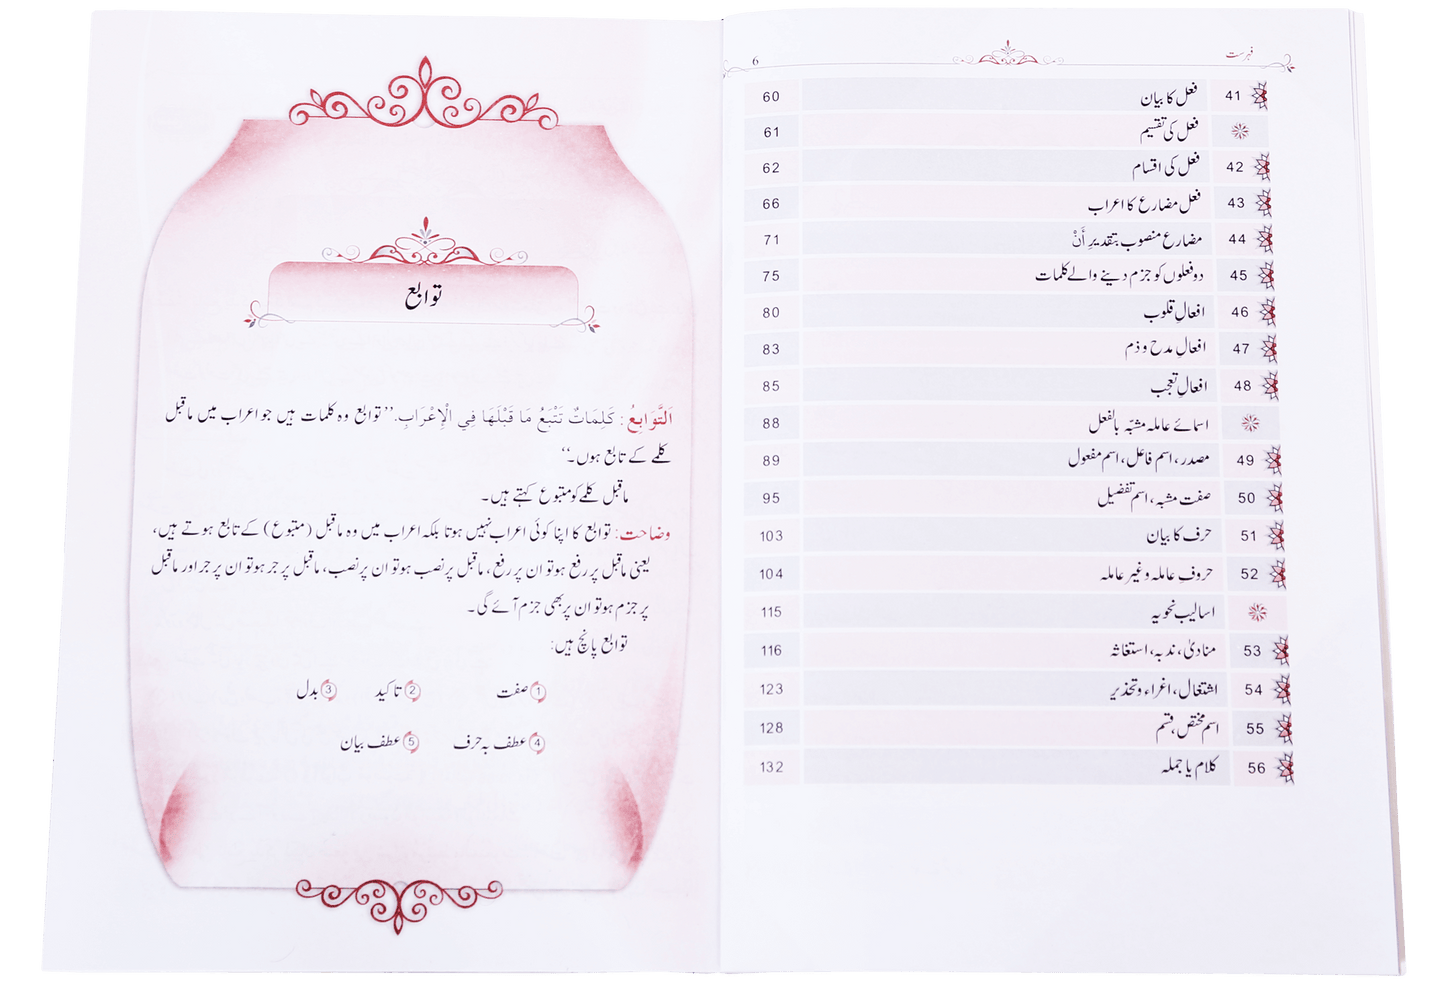 6 فہرست
41 فعل کا بیان 60
فعل کی تقسیم 61
42 فعل کی اقسام 62
43 فعل مضارع کا اعراب 66
44 مضارع منصوب بتقدیرِ أَنْ 71
45 دو فعلوں کو جزم دینے والے کلمات 75
46 افعالِ قلوب 80
47 افعالِ مدح و ذم 83
48 افعالِ تعجب 85
اسمائے عاملہ مشبّہ بالفعل 88
49 مصدر، اسم فاعل، اسم مفعول 89
50 صفت مشبہ، اسم تفضیل 95
51 حرف کا بیان 103
52 حروفِ عاملہ و غیر عاملہ 104
اسالیب نحویہ 115
53 منادیٰ، ندبہ، استغاثہ 116
54 اشتغال، اغراء و تحذیر 123
55 اسم مختص، قسم 128
56 کلام یا جملہ 132
توابع
اَلتَّوَابِعُ: كَلِمَاتٌ تَتْبَعُ مَا قَبْلَهَا فِي الْإِعْرَابِ. ’’توابع وہ کلمات ہیں جو اعراب میں ماقبل
کلمے کے تابع ہوں۔‘‘
ماقبل کلمے کو متبوع کہتے ہیں۔
وضاحت: توابع کا اپنا کوئی اعراب نہیں ہوتا بلکہ اعراب میں وہ ماقبل (متبوع) کے تابع ہوتے ہیں،
یعنی ماقبل پر رفع ہو تو ان پر رفع، ماقبل پر نصب ہو تو ان پر نصب، ماقبل پر جر ہو تو ان پر جر اور ماقبل
پر جزم ہو تو ان پر بھی جزم آئے گی۔
توابع پانچ ہیں:
① صفت ② تاکید ③ بدل
④ عطف بہ حرف ⑤ عطف بیان